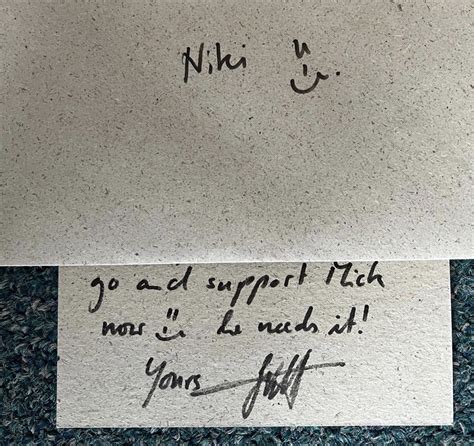 Niki
go and support Mick
now he needs it!
Yours